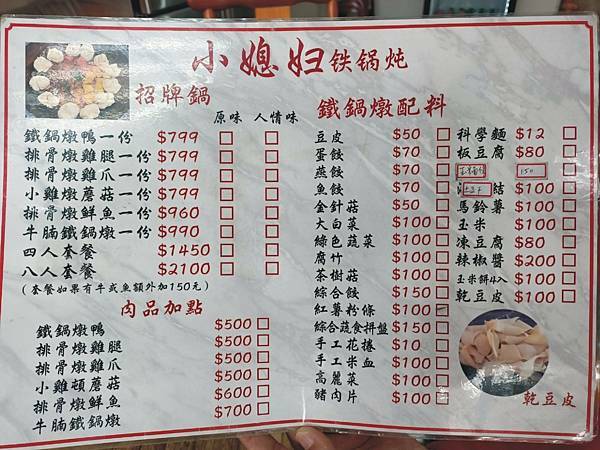 小媳妇铁锅炖
招牌鍋
原味 人情味
鐵鍋燉鴨一份 $799
排骨燉雞腿一份 $799
排骨燉雞爪一份 $799
小雞燉蘑菇一份 $799
排骨燉鮮魚一份 $960
牛腩鐵鍋燉一份 $990
四人套餐 $1450
八人套餐 $2100
(套餐如果有牛或魚額外加150元)
肉品加點
鐵鍋燉鴨 $500
排骨燉雞腿 $500
排骨燉雞爪 $500
小雞頓蘑菇 $500
排骨燉鮮魚 $600
牛腩鐵鍋燉 $700
鐵鍋燉配料
豆皮 $50
蛋餃 $70
燕餃 $70
魚餃 $70
金針菇 $50
大白菜 $100
綠色蔬菜 $100
腐竹 $100
茶樹菇 $100
綜合餃 $150
紅薯粉條 $100
綜合蔬食拼盤 $150
手工花捲 $10
手工米血 $100
高麗菜 $100
豬肉片 $100
科學麵 $12
板豆腐 $80
150
結 $100
馬鈴薯 $100
玉米 $100
凍豆腐 $80
辣椒醬 $200
玉米餅4入 $100
乾豆皮 $100
乾豆皮